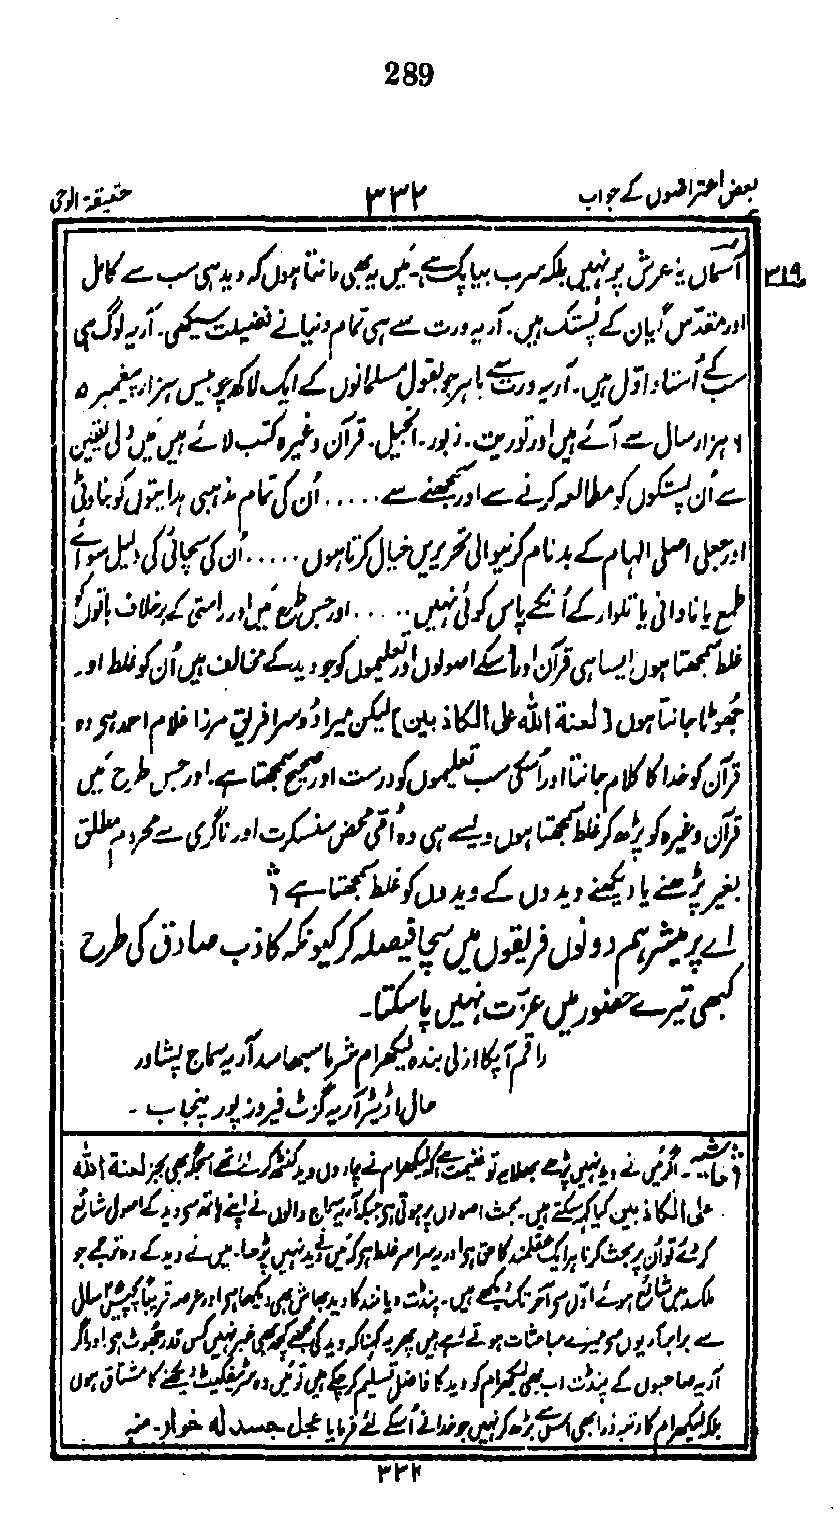 289
بعض اعتراضوں کے جواب
۳۳۲
حقیقۃ الوحی
آسمان یا عرش پر نہیں بلکہ سرب بیاپک ہے۔ مَیں یہ بھی مانتا ہوں کہ وید ہی سب سے کامل
۳۱۹
اور مقدّس گیان کے پُستک ہیں۔ آریہ ورت سے ہی تمام دنیا نے فضیلت سیکھی۔ آریہ لوگ ہی
سب کے اُستاد اوّل ہیں۔ آریہ ورت سے باہر جو بقول مسلمانوں کے ایک لاکھ چوبیس ہزار پیغمبر ۵
۶ ہزار سال سے آئے ہیں اور توریت۔ زبور۔ انجیل۔ قرآن وغیرہ کتب لائے ہیں مَیں دلی یقین
سے اُن پستکوں کو مطالعہ کرنے سے اور سمجھنے سے ..... اُن کی تمام مذہبی ہدایتوں کو بناوٹی
اور جعلی اصلی الہام کے بدنام کرنیوالی تحریریں خیال کرتا ہوں ..... اُن کی سچائی کی دلیل سوائے
طمع یا نادانی یا تلوار کے اُنکے پاس کوئی نہیں ..... اور جس طرح مَیں اور راستی کے برخلاف باتوں کو
غلط سمجھتا ہوں ایسا ہی قرآن اور اُسکے اصولوں اور تعلیموں کو جو وید کے مخالف ہیں اُن کو غلط اور
جُھوٹا جانتا ہوں [ لعنة الله على الكاذبين ] لیکن میرا دُوسرا فریق مرزا غلام احمد ہے وہ
قرآن کو خدا کا کلام جانتا اور اُسکی سب تعلیموں کو درست اور صحیح سمجھتا ہے۔ اور جس طرح مَیں
قرآن وغیرہ کو پڑھ کر غلط سمجھتا ہوں ویسے ہی وہ اُمّی محض سنسکرت اور ناگری سے محروم مطلق
بغیر پڑھنے یا دیکھنے ویدوں کے ویدوں کو غلط سمجھتا ہے
اے پرمیشر ہم دونوں فریقوں میں سچا فیصلہ کر کیونکہ کاذب صادق کی طرح
کبھی تیرے حضور میں عزّت نہیں پا سکتا۔
راقم آپکا ازلی بندہ لیکھرام شرما سبھاسد آریہ سماج پشاور
حال اڈیٹر آریہ گزٹ فیروز پور پنجاب۔
حاشیہ۔ اگر مَیں نے وید نہیں پڑھے بھلا یہ تو غنیمت ہے کہ لیکھرام نے چاروں وید کنٹھ کرلئے تھے اسجگہ بھی بجز لعنة الله
على الكاذبين کیا کہہ سکتے ہیں۔ بحث اصولوں پر ہوتی ہے جبکہ آریہ سماج والوں نے اپنے ہاتھ سے وید کے اصول شائع
کر دئے تو اُن پر بحث کرنا ہر ایک عقلمند کا حق ہے اور یہ سراسر غلط ہے کہ مَیں نے وید نہیں پڑھا۔ میں نے وید کے وہ ترجمے جو
ملک میں شائع ہوئے اوّل سے آخر تک دیکھے ہیں۔ پنڈت دیانند کا وید بھاش بھی دیکھا ہے اور عرصہ قریباً پچیس ۲۵ سال
سے برابر آریوں سے میرے مباحثات ہوتے رہے ہیں پھر یہ کہنا کہ وید کی مجھے کچھ بھی خبر نہیں کس قدر جھوٹ ہے اور اگر
آریہ صاحبوں کے پنڈت اب بھی لیکھرام کو وید کا فاضل تسلیم کر چکے ہیں تو مَیں وہ سرٹیفکیٹ دیکھنے کا مشتاق ہوں
بلکہ لیکھرام کا رتبہ ذرا بھی اس سے بڑھ کر نہیں جو خدا نے اُسکے لئے فرمایا عجل جسد له خوار۔ منه
۳۳۲